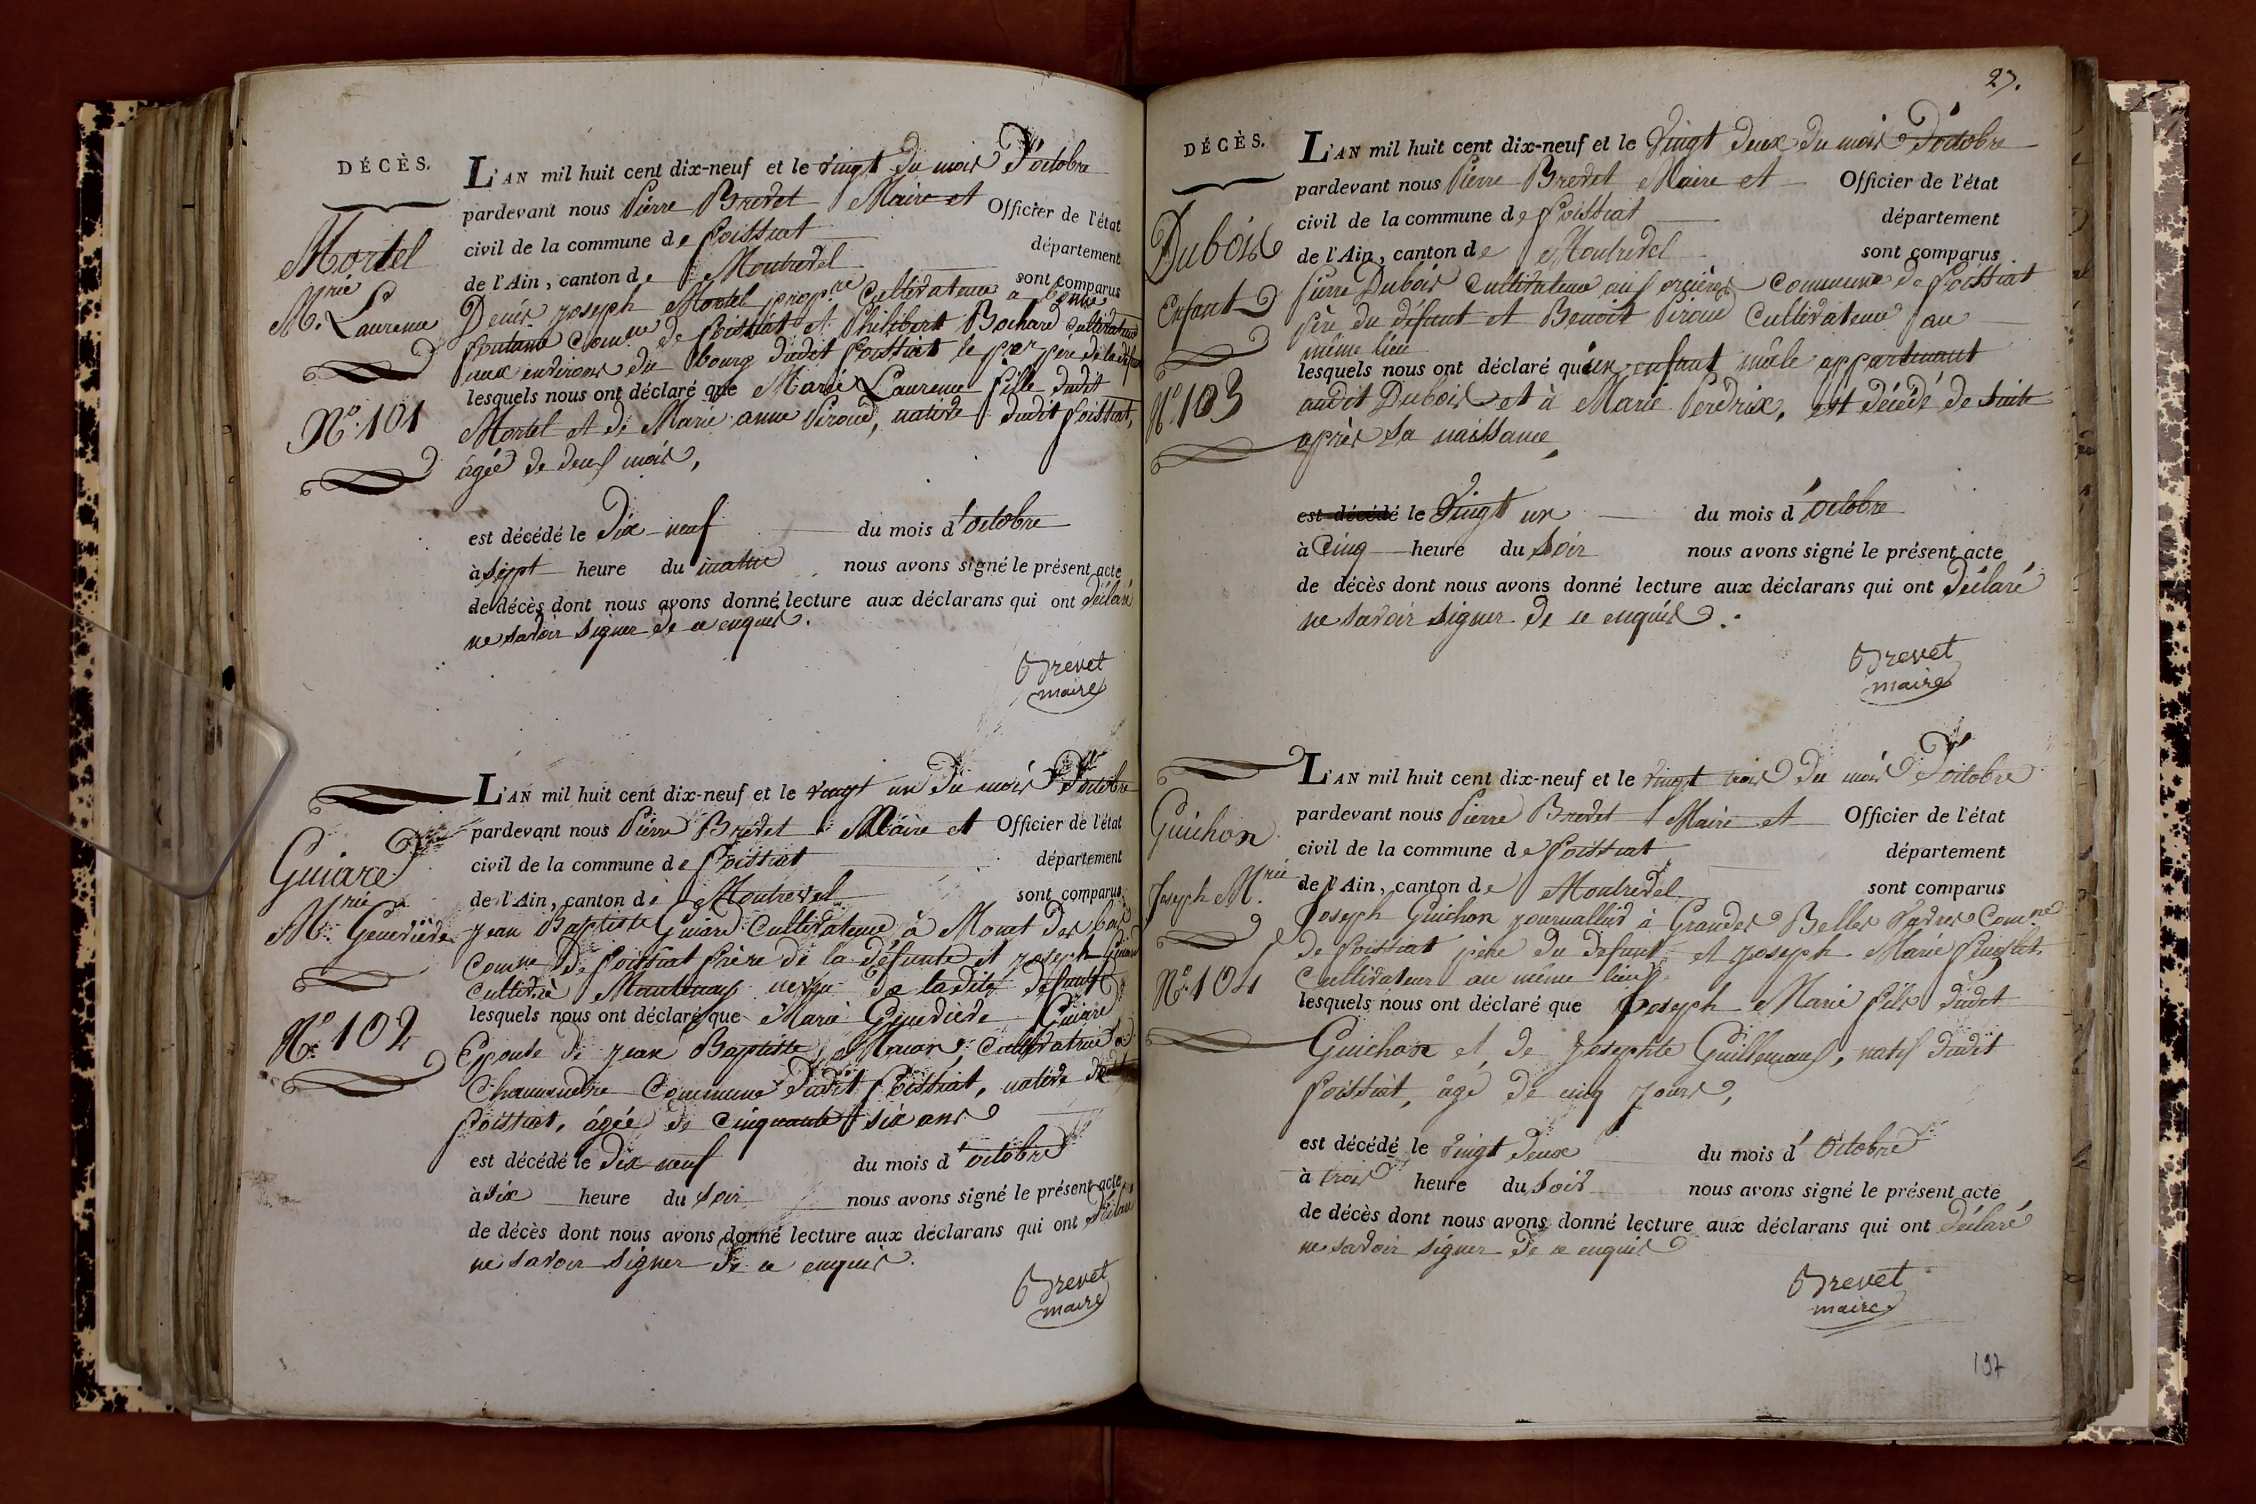 DÉCÈS.
Mortel
M.rie Laurence
N.o 101
L'AN mil huit cent dix-neuf et le vingt du mois d'octobre
pardevant nous Pierre Brevet Maire et Officier de l'état
civil de la commune de Foissiat département
de l'Ain, canton de Montrevel sont comparus
Denis Joseph Mortel propre cultivateur à
fontaine Comne de Foissiat et Philibert Bochard Cultivateur
aux environs du bourg dudit Foissiat le pier père de la
lesquels nous ont déclaré que Marie Laurence fille dudit
Mortel et de Marie anne Piroud, native dudit Foissiat,
âgée de deux mois,
est décédé le Dix neuf du mois d'octobre
à sept heure du matin nous avons signé le présent acte
de décès dont nous avons donné lecture aux déclarans qui ont déclaré
ne savoir signer de ce enquis.
Brevet
maire
Guiard
M.rie Genevieve
N.o 102
L'AN mil huit cent dix-neuf et le vingt un du mois d'octobre
pardevant nous Pierre Brevet Maire et Officier de l'état
civil de la commune de Foissiat département
de l'Ain, canton de Montrevel sont comparus
Jean Baptiste Guiard Cultivateur à Mont des
Comne de Foissiat frère de la défunte et Joseph Guiard
Cultivr à neveu de ladite défunte
lesquels nous ont déclaré que Marie Genevieve Guiard
Epouse de Jean Baptiste Cultivatrice à
Commune dudit Foissiat, native dudit
Foissiat, âgée de cinquante six ans
est décédé le dix neuf du mois d'octobre
à six heure du soir nous avons signé le présent acte
de décès dont nous avons donné lecture aux déclarans qui ont déclaré
ne savoir signer de ce enquis.
Brevet
maire
27.
DÉCÈS.
Dubois
Enfant
N.o 103
L'AN mil huit cent dix-neuf et le Vingt deux du mois d'octobre
pardevant nous Pierre Brevet Maire et Officier de l'état
civil de la commune de Foissiat département
de l'Ain, canton de Montrevel sont comparus
Pierre Dubois Cultivateur aux commune de Foissiat
père du défunt et Benoit Piroud Cultivateur au
même lieu
lesquels nous ont déclaré qu'un enfant mâle appartenant
audit Dubois et à Marie Perdrix, est décédé de suite
après sa naissance,
est décédé le Vingt un du mois d'octobre
à Cinq heure du soir nous avons signé le présent acte
de décès dont nous avons donné lecture aux déclarans qui ont déclaré
ne savoir signer de ce enquis.
Brevet
maire
Guichon
Joseph M.rie
N.o 104
L'AN mil huit cent dix-neuf et le vingt trois du mois d'octobre
pardevant nous Pierre Brevet Maire et Officier de l'état
civil de la commune de Foissiat département
de l'Ain, canton de Montrevel sont comparus
Joseph Guichon journallier à Grandes Belles Comne
de Foissiat père du défunt et Joseph Marie
Cultivateur au même lieu
lesquels nous ont déclaré que Joseph Marie fils dudit
Guichon et de Josephte Guillemaud, natif dudit
Foissiat, âgé de cinq jours,
est décédé le vingt deux du mois d'Octobre
à trois heure du soir nous avons signé le présent acte
de décès dont nous avons donné lecture aux déclarans qui ont déclaré
ne savoir signer de ce enquis
Brevet
maire
197